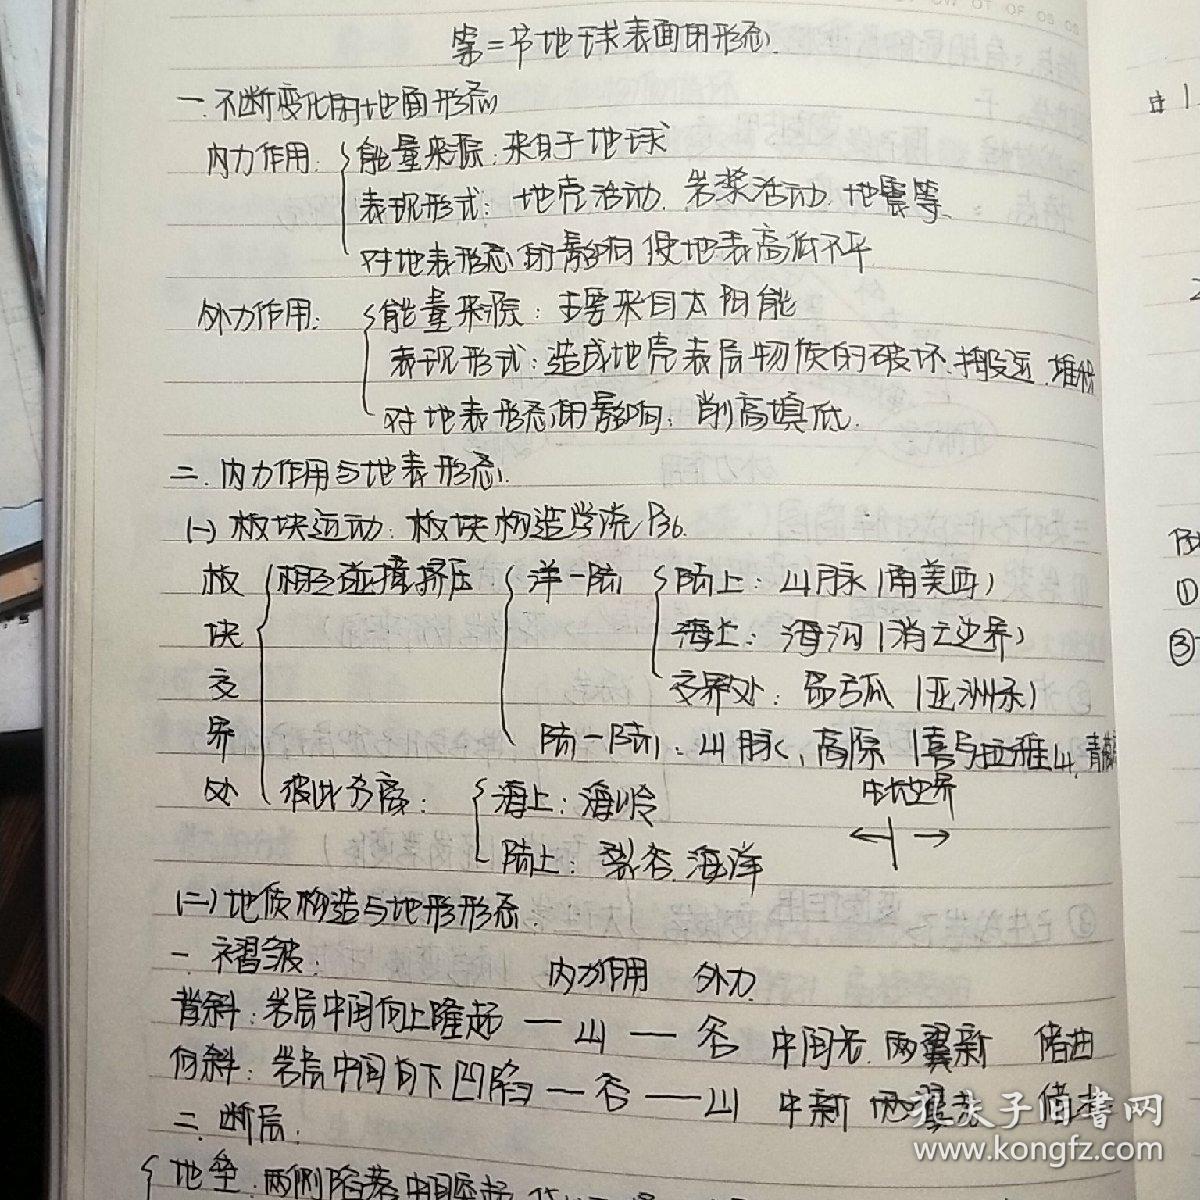 第二节地球表面的形态
一.不断变化的地面形态
内力作用: 能量来源:来自于地球
表现形式: 地壳活动.岩浆活动.地震等.
对地表形态的影响 使地表高低不平
外力作用: 能量来源: 主要来自太阳能
表现形式: 造成地壳表层物质的破坏.搬运.堆积
对地表形态的影响: 削高填低.
二.内力作用与地表形态.
(一)板块运动: 板块构造学说P36.
板块交界处
相互碰撞挤压 洋一陆 陆上: 山脉(南美西)
海上: 海沟(消亡边界)
交界处: 岛弧(亚洲东)
陆一陆: 山脉、高原 (喜马拉雅山.青藏
彼此分离: 海上: 海岭 生长边界
陆上: 裂谷.海洋
(二)地质构造与地形形态.
一.褶皱: 内力作用 外力
背斜: 岩层中间向上隆起 一 山 一 谷 中间老.两翼新 储油
向斜: 岩层中间向下凹陷 一 谷 一 山 中新 两翼老 储水
二.断层:
地垒: 两侧陷落中间隆起
孔夫子旧书网
www.kongfz.com
①
③